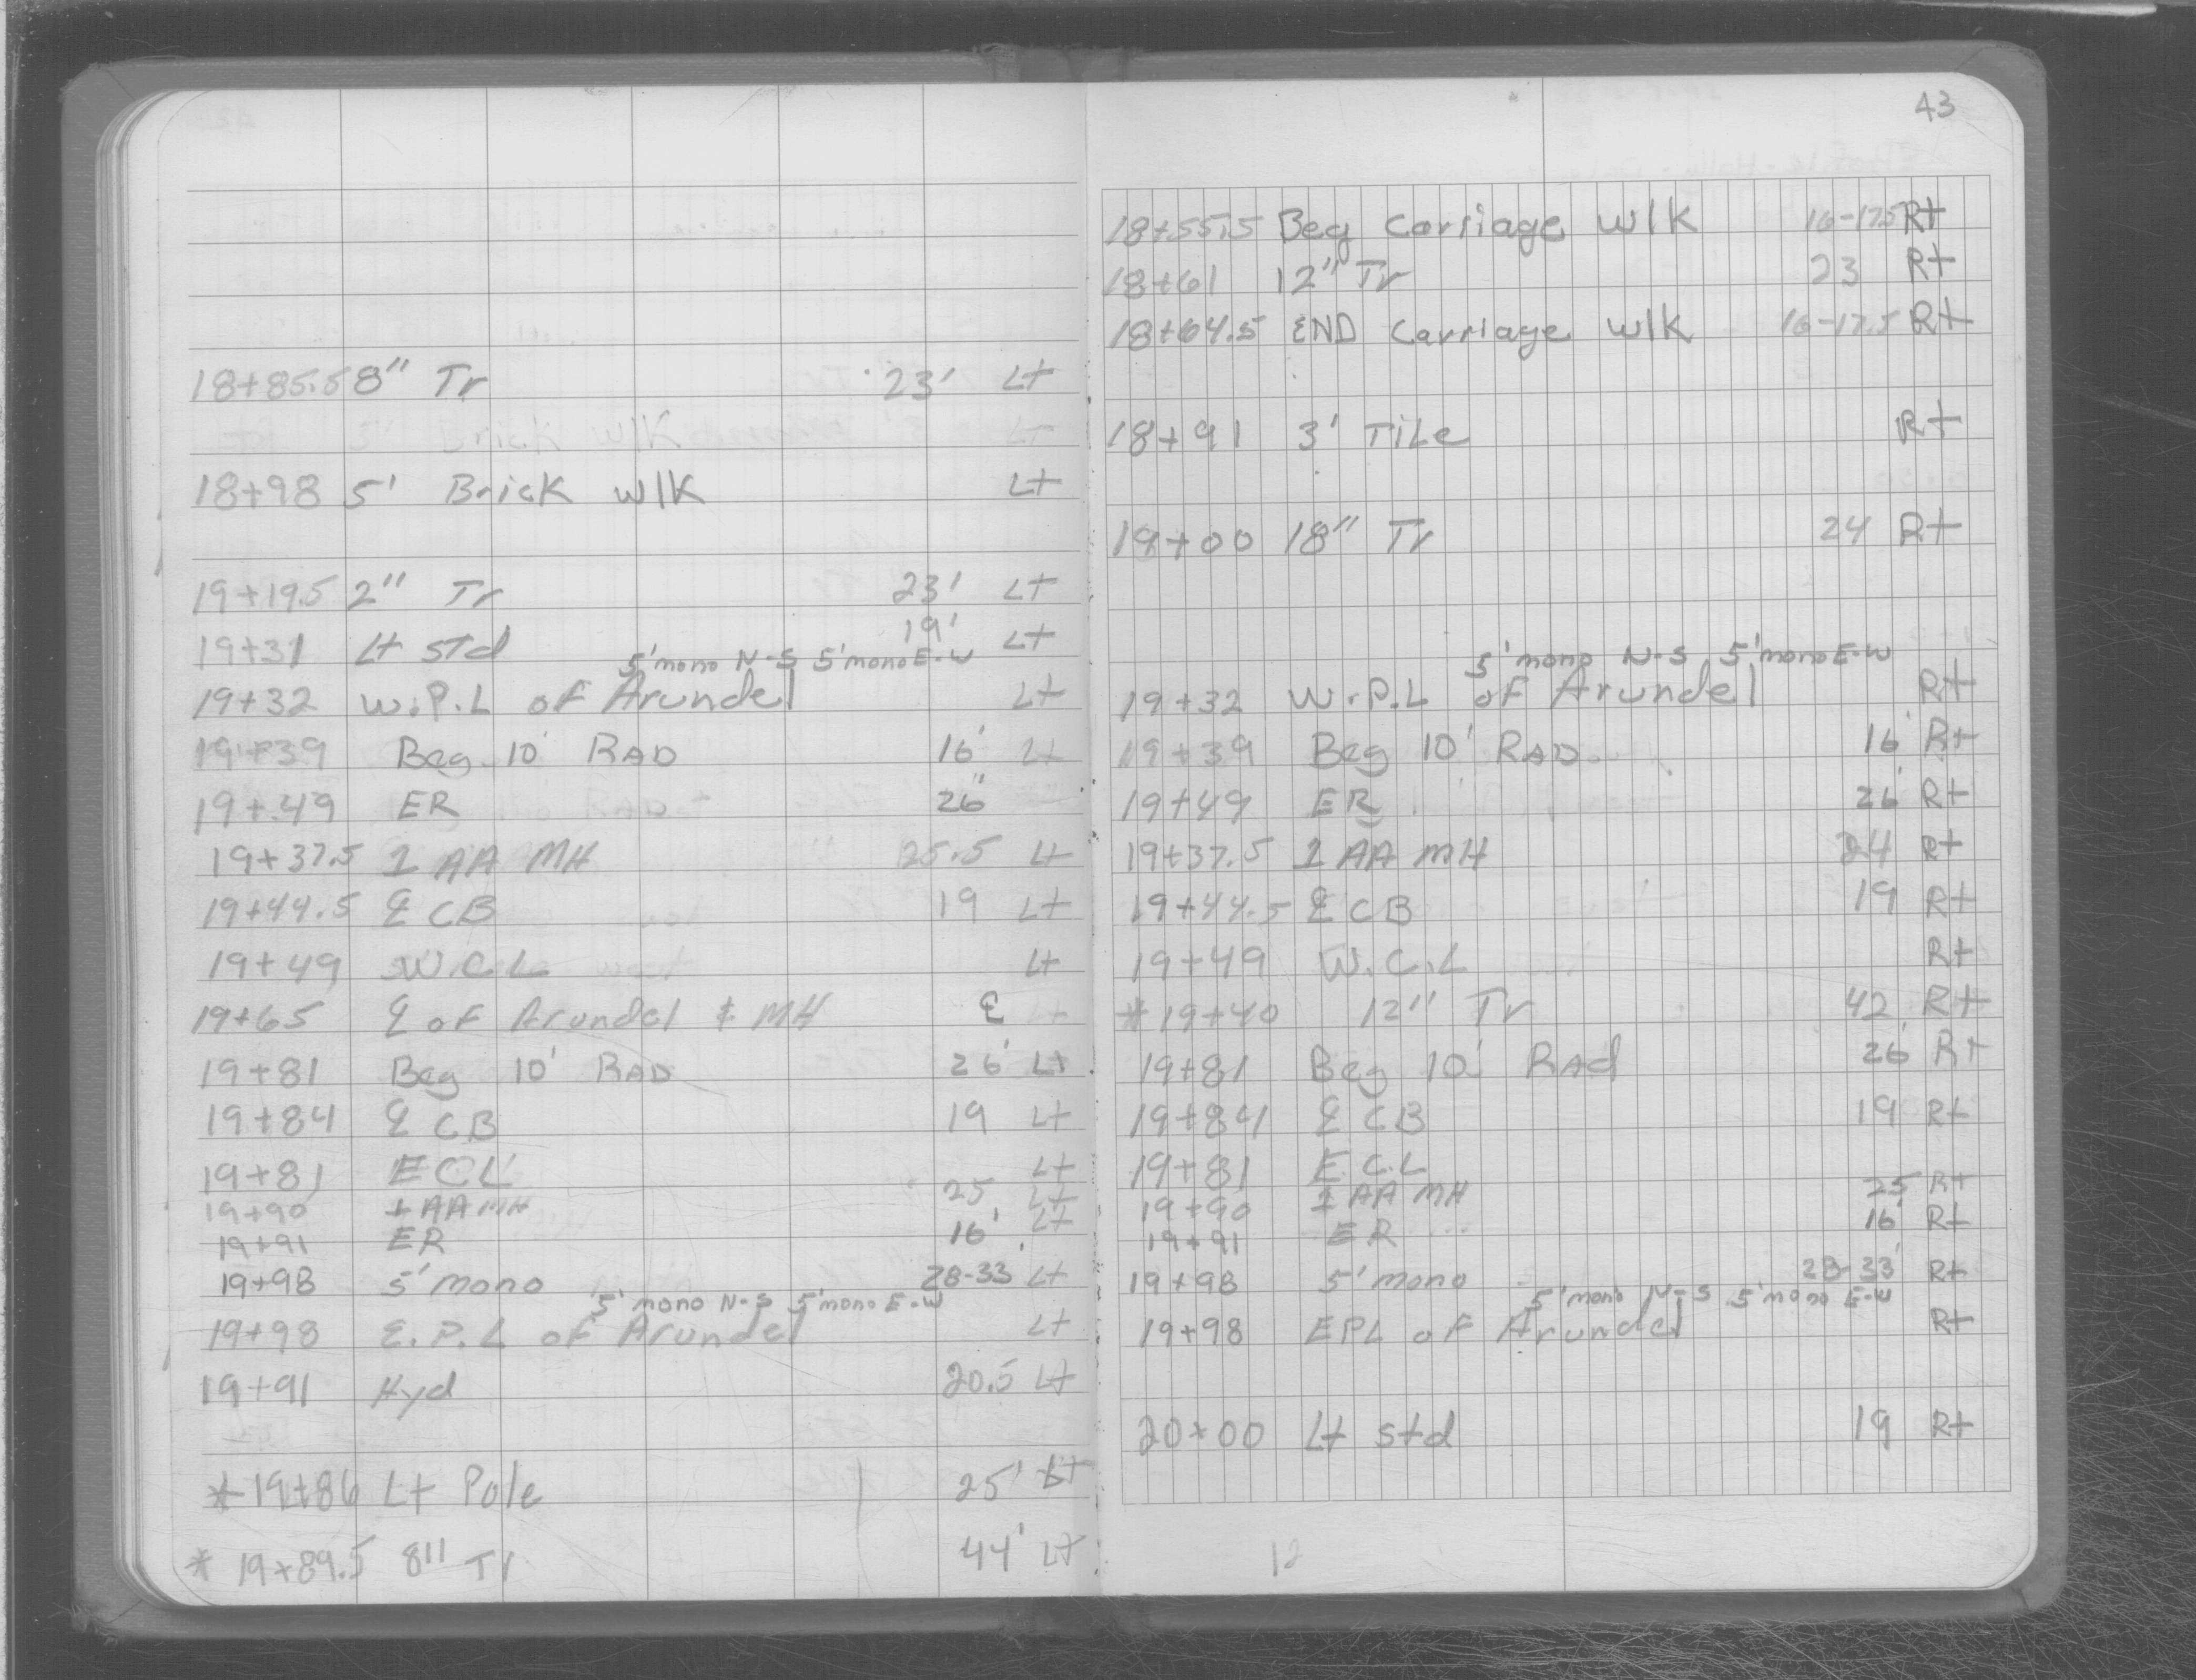 18+85.5 8" Tr 23' Lt
18+98 5' Brick WlK Lt
19+19.5 2" Tr 23' Lt
19+31 Lt Std 19' Lt
5' mono N-S 5' mono E-W
19+32 W.P.L of Arundel Lt
19+39 Beg 10' RAD 16' Lt
19+49 ER 26"
19+37.5 1 AA MH 25.5 Lt
19+44.5 ℄ CB 19 Lt
19+49 W.C.L Lt
19+65 ℄ of Arundel & MH ℄
19+81 Beg 10' RAD 26' Lt
19+84 ℄ CB 19 Lt
19+81 ECL Lt
19+90 1 AA MH 25 Lt
19+91 ER 16' Lt
19+98 5' mono 28-33' Lt
5' mono N-S 5' mono E-W
19+98 E.P.L of Arundel Lt
19+91 Hyd 20.5 Lt
*19+86 Lt Pole 25' Lt
* 19+89.5 8" Tr 44' Lt
43
18+55.5 Beg Carriage WlK 16-17.5 Rt
18+61 12" Tr 23 Rt
18+64.5 END Carriage WlK 16-17.5 Rt
18+91 3' TiLe Rt
19+00 18" Tr 24 Rt
5' mono N-S 5' mono E-W
19+32 W.P.L of Arundel Rt
19+39 Beg 10' RAD 16' Rt
19+49 ER 26' Rt
19+37.5 1 AA MH 24 Rt
19+44.5 ℄ CB 19 Rt
19+49 W.C.L Rt
* 19+40 12" Tr 42 Rt
19+81 Beg 10' RAd 26' Rt
19+84 ℄ CB 19 Rt
19+81 E.C.L
19+90 1 AA MH 25 Rt
19+91 ER 16' Rt
19+98 5' mono 28-33' Rt
5' mono N-S 5' mono E-W
19+98 EPL of Arundel Rt
20+00 Lt Std 19 Rt
12